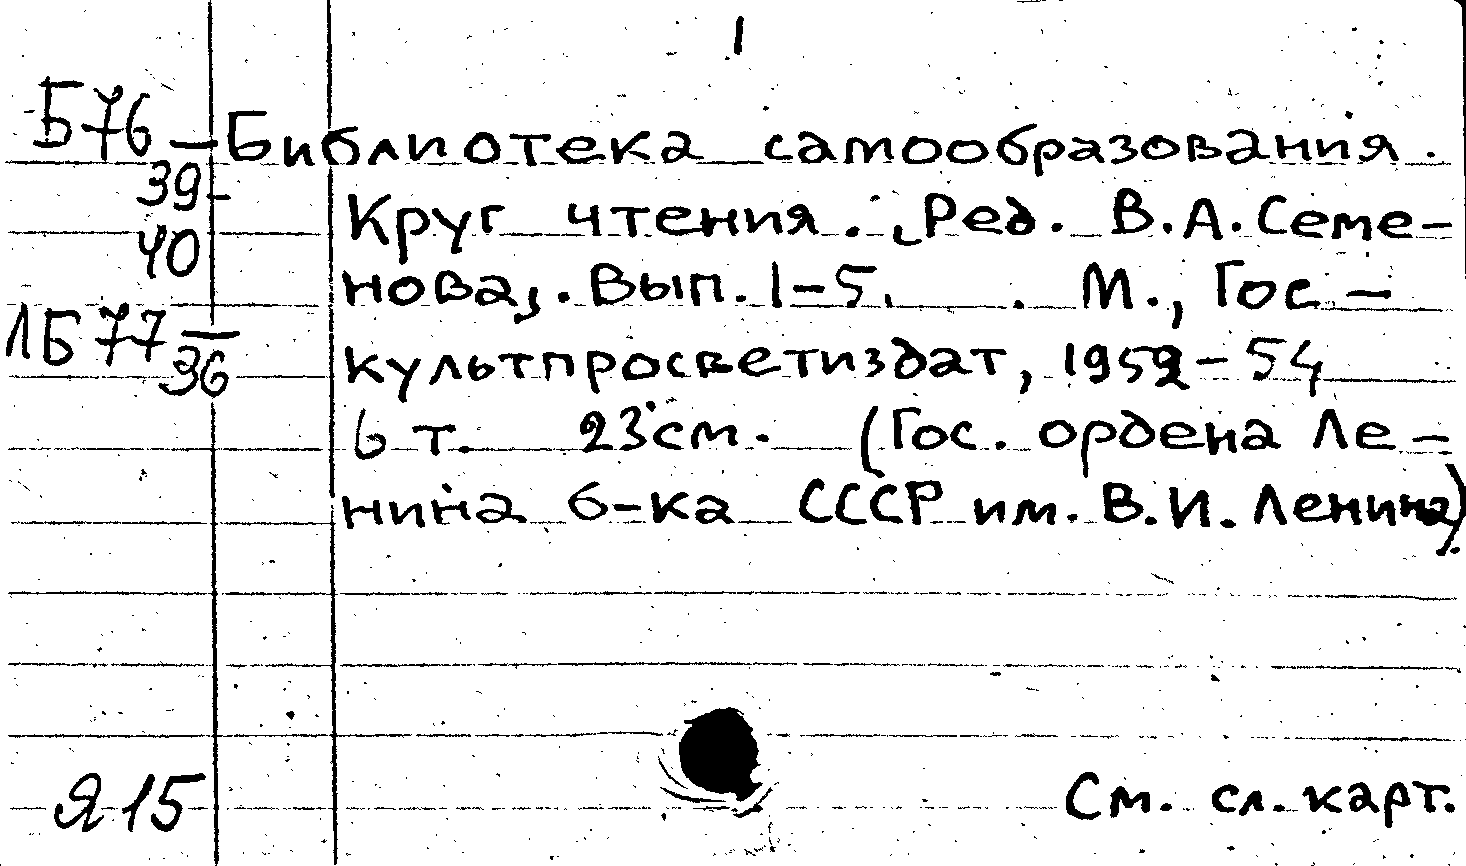 1
Б76 — Библиотека самообразования.
39-
40
Круг чтения. Ред. В.А. Семе-
нова,. Вып. 1-5. . М., Гос. -
1Б77—
36
культпросветиздат, 1952-54
6 т. 23 см. (Гос. ордена Ле-
нина б-ка СССР им. В.И. Ленина).
Я15
См. сл. карт.